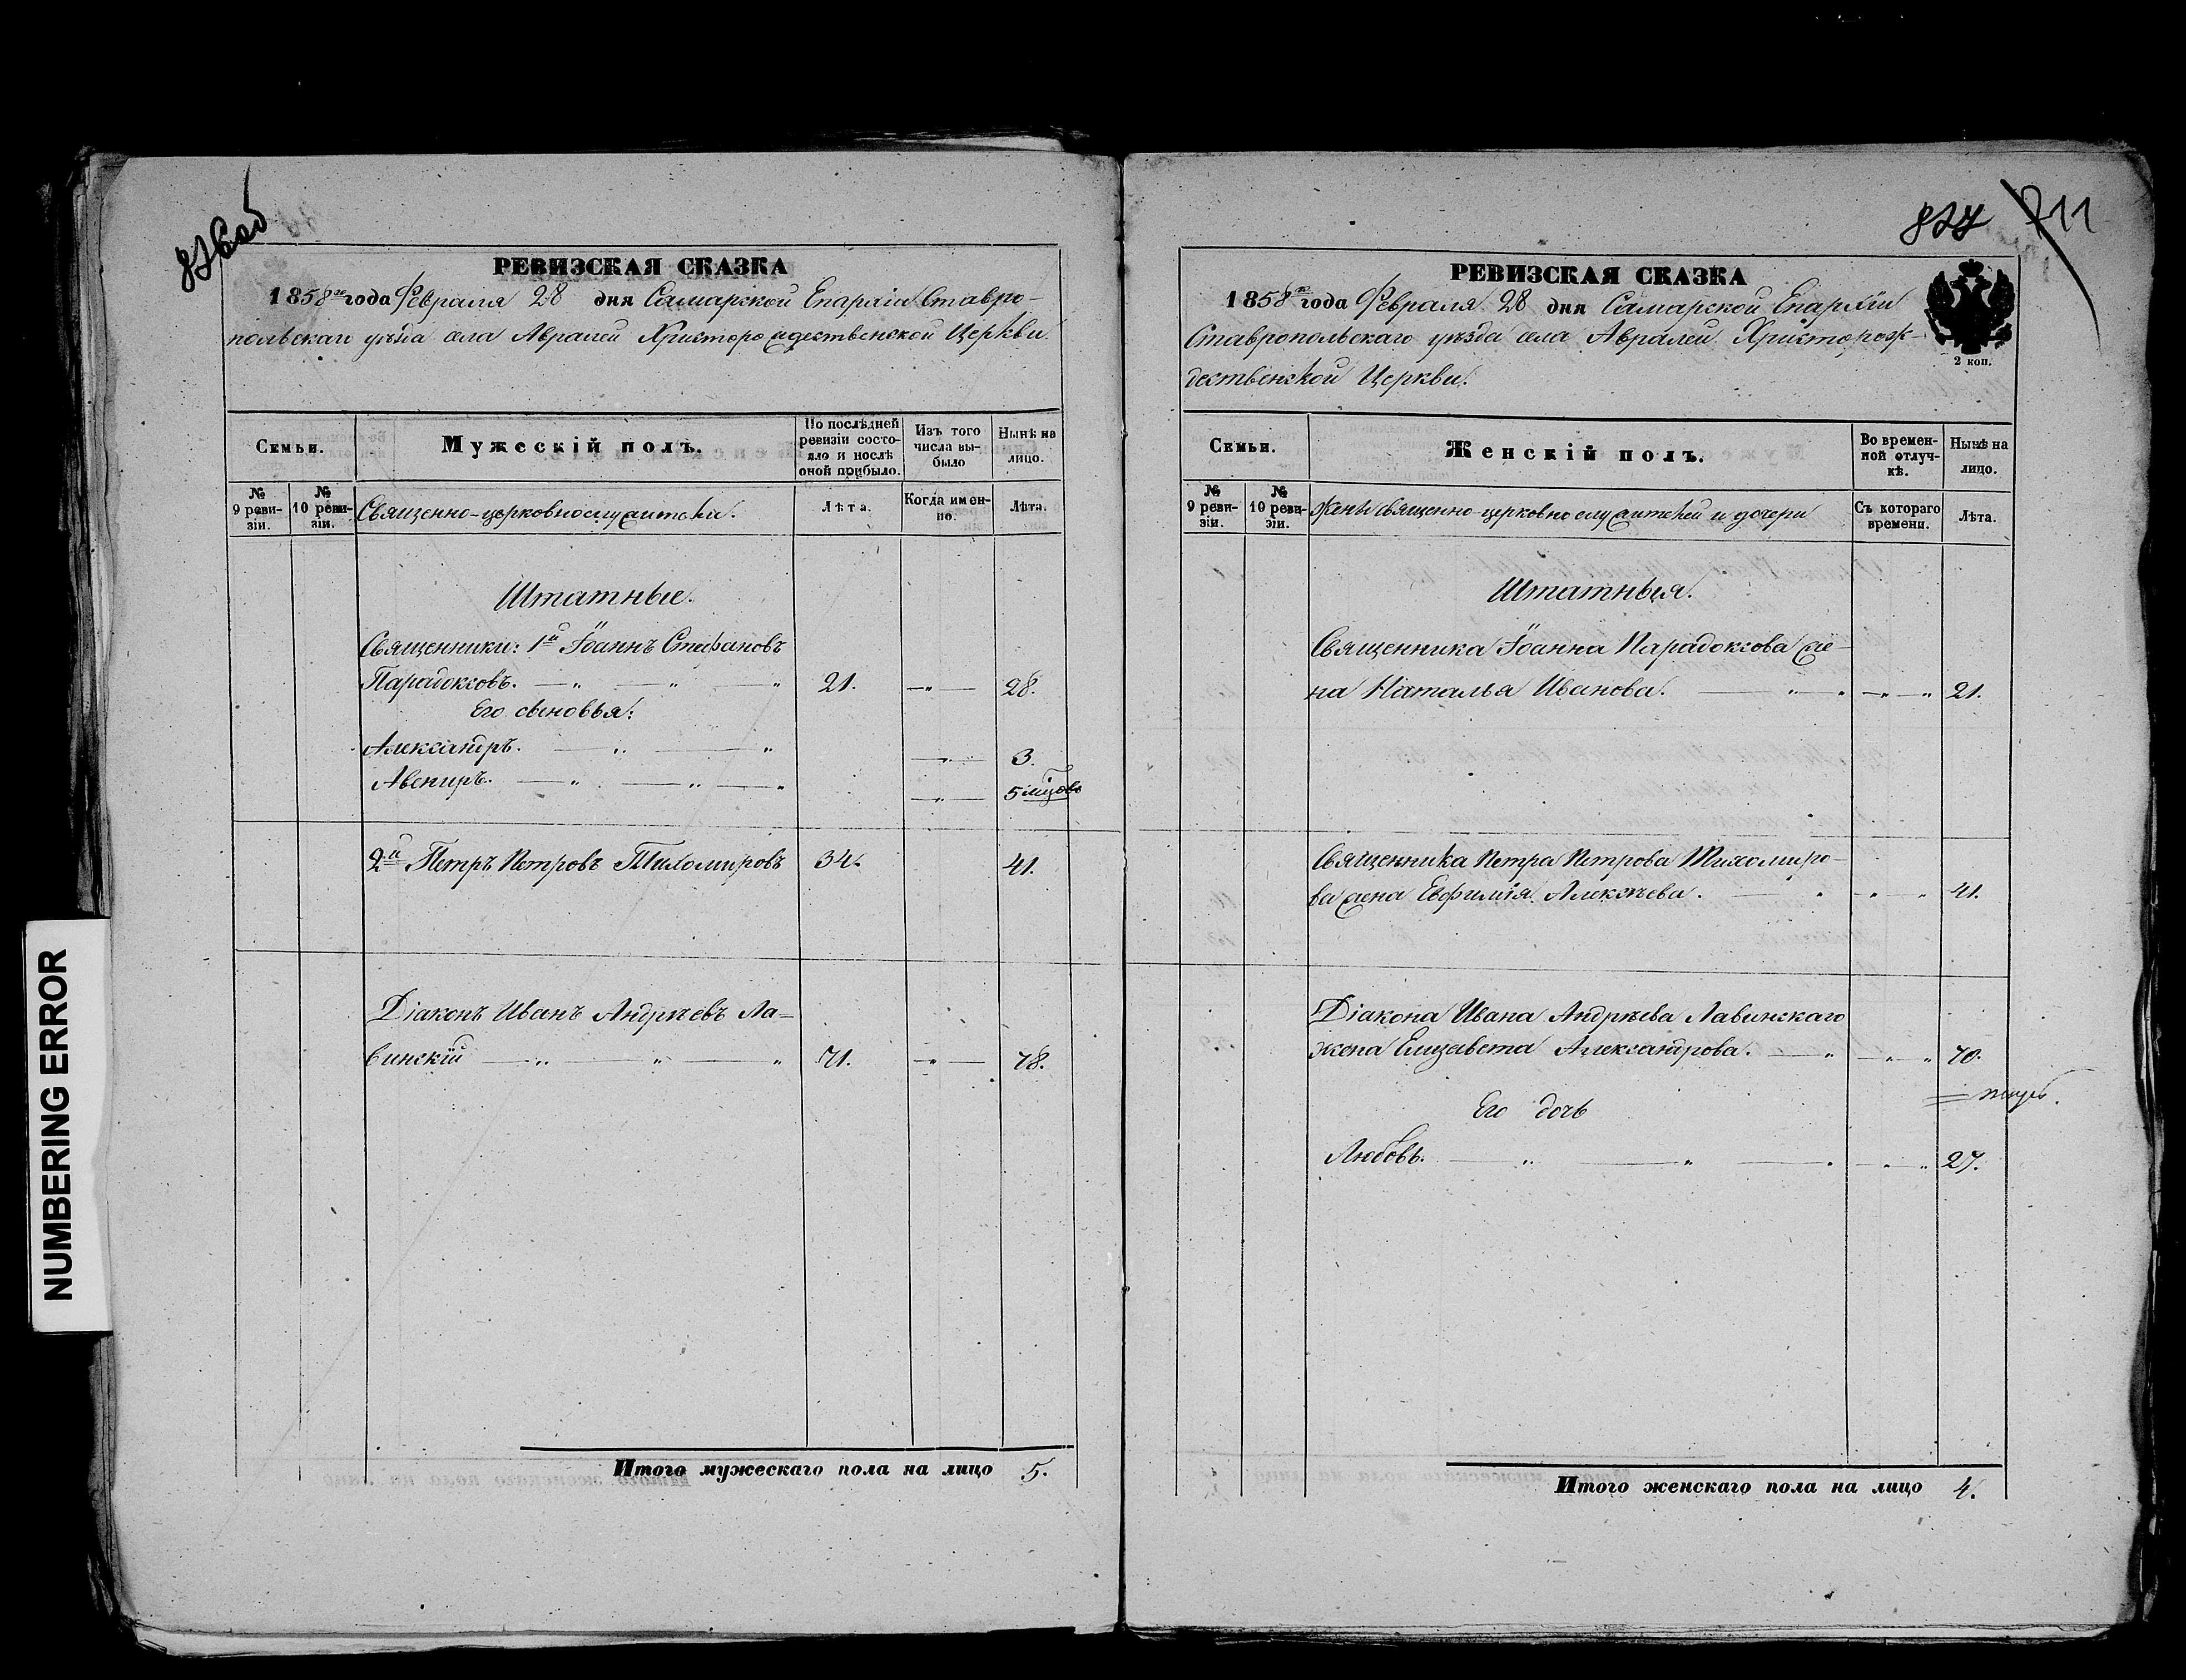 826 об
РЕВИЗСКАЯ СКАЗКА
1858го года Февраля 28 дня Самарской Епархіи Ставро-
польскаго уѣзда села Авралей Христорождественской Церкви.
Семьи.
Мужескій полъ.
По послѣдней ревизіи состо-яло и послѣ оной прибыло.
Изъ того числа вы-было
Нынѣ на лицо.
№ 9 реви-зіи.
№ 10 реви-зіи.
Священно-церковнослужители.
Лѣта.
Когда имен-но.
Лѣта.
Штатные.
Священники: 1й Іоаннъ Стефановъ
Парадоксовъ. — „ — „ — „ 21. — „ — 28.
Его сыновья:
Александръ. — „ — „ — „ — 3.
Авениръ. — „ — „ — „ — „ — 5 мѣсяцовъ
2й Петръ Петровъ Тихомировъ 34. 41.
Діаконъ Иванъ Андреевъ Ла-
винскій — „ — „ — „ 71. — „ — 78.
Итого мужескаго пола на лицо 5.
827 711
РЕВИЗСКАЯ СКАЗКА
1858го года Февраля 28 дня Самарской Епархіи
Ставропольскаго уѣзда села Авралей Христорож-
дественской Церкви.
2 коп.
Семьи.
Женскій полъ.
Во времен-ной отлуч-кѣ.
Нынѣ на лицо.
№ 9 реви-зіи.
№ 10 реви-зіи.
Жены священно-церковнослужителей и дочери
Съ котораго времени.
Лѣта.
Штатныя.
Священника Іоанна Парадоксова же-
на Наталья Иванова. — „ „ — „ — „ 21.
Священника Петра Петрова Тихомиро-
ва жена Евфимія Алексѣева. — „ „ „ 41.
Діакона Ивана Андреева Лавинскаго
жена Елизавета Александрова. — „ — „ „ 70.
Его дочь
Любовь. — „ — „ — „ — „ „ 27.
Итого женскаго пола на лицо 4.
NUMBERING ERROR